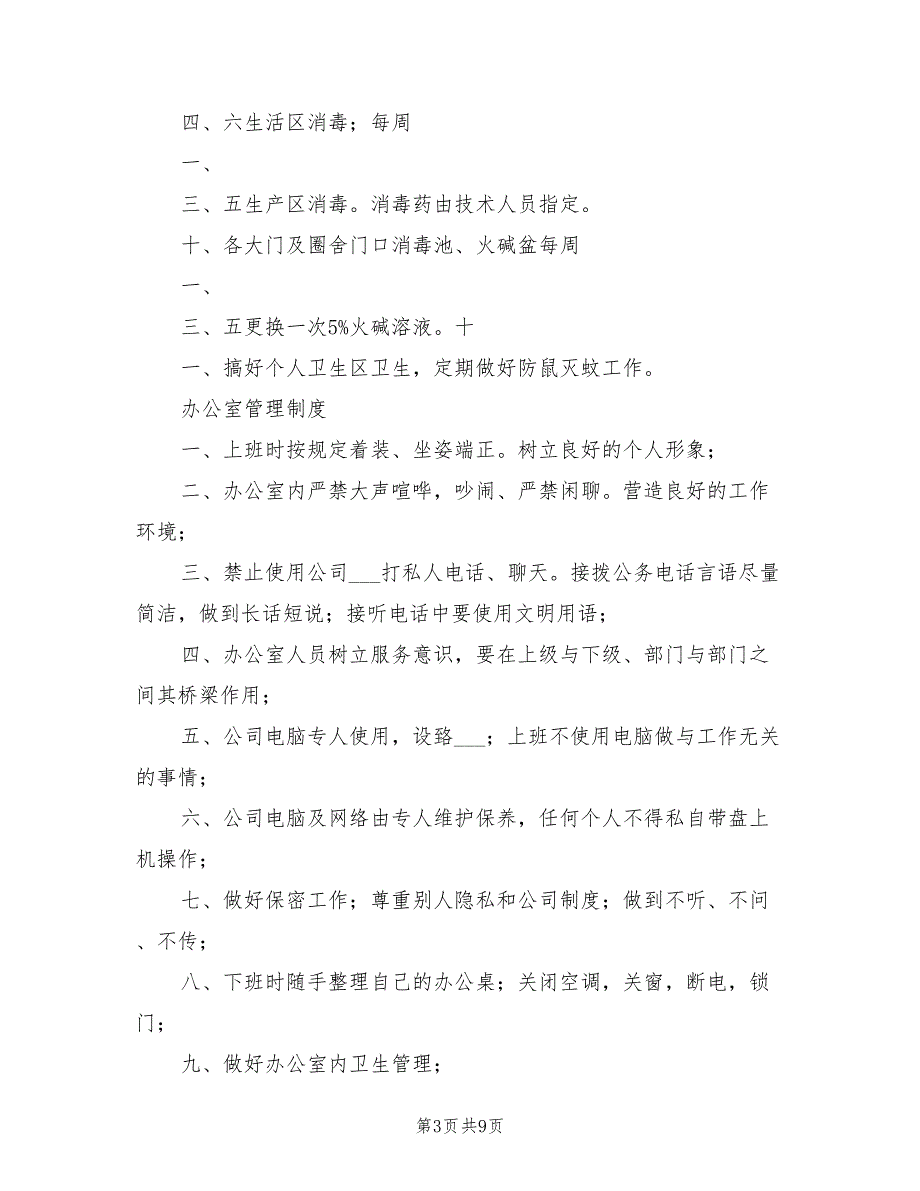 四、六生活区消毒；每周
一、
三、五生产区消毒。消毒药由技术人员指定。
十、各大门及圈舍门口消毒池、火碱盆每周
一、
三、五更换一次5%火碱溶液。十
一、搞好个人卫生区卫生，定期做好防鼠灭蚊工作。
办公室管理制度
一、上班时按规定着装、坐姿端正。树立良好的个人形象；
二、办公室内严禁大声喧哗，吵闹、严禁闲聊。营造良好的工作
环境；
三、禁止使用公司___打私人电话、聊天。接拨公务电话言语尽量
简洁，做到长话短说；接听电话中要使用文明用语；
四、办公室人员树立服务意识，要在上级与下级、部门与部门之
间其桥梁作用；
五、公司电脑专人使用，设臵___；上班不使用电脑做与工作无关
的事情；
六、公司电脑及网络由专人维护保养，任何个人不得私自带盘上
机操作；
七、做好保密工作；尊重别人隐私和公司制度；做到不听、不问
、不传；
八、下班时随手整理自己的办公桌；关闭空调，关窗，断电，锁
门；
九、做好办公室内卫生管理；
第3页共9页